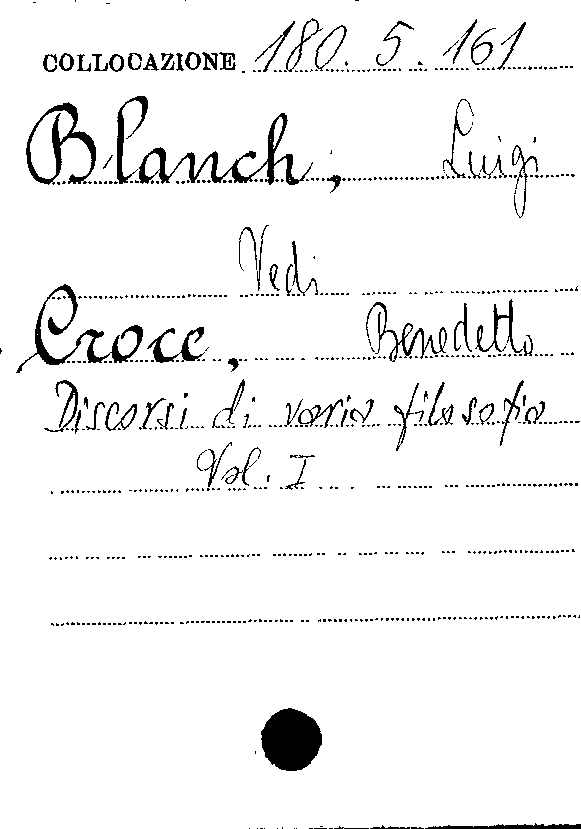 COLLOCAZIONE 180.5.161
Blanch, Luigi
Vedi
Croce, Benedetto
Discorsi di varia filosofia
Vol. I